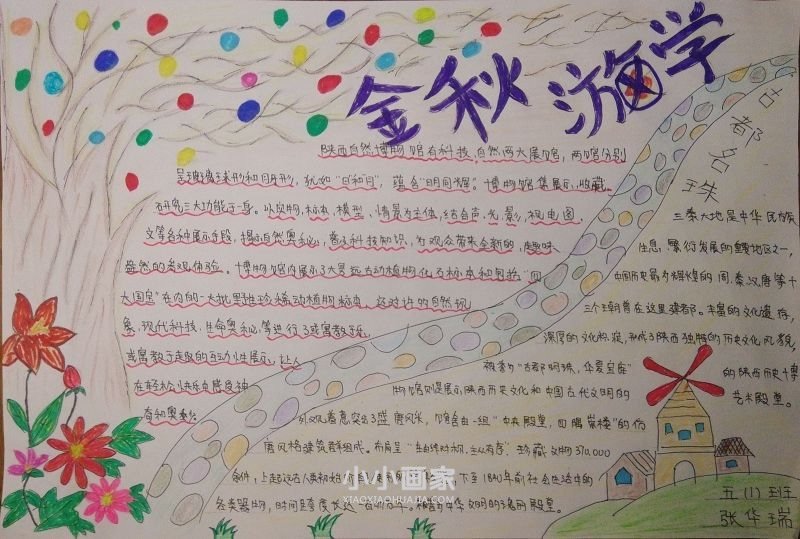 金秋游学
古都名珠
陕西自然博物馆有科技、自然两大展馆,两馆分别
呈玻璃球形和月牙形,犹如"日和月",蕴含"明同辉"。博物馆集展示、收藏
研究三大功能于一身。以实物、标本、模型、情景为主体,结合声、光、影、视、电、图、
文等各种展示手段,揭示自然奥秘,普及科技知识,为观众带来全新的、趣味
盎然的参观体验。博物馆内展示了大量远古动植物化石标本和包括"四
大国宝"在内的一大批珍稀动植物标本。这对许的自然现
象、现代科技、生命奥秘等进行了
或寓教于趣的互动性展示,让人
在轻松快乐中感受神
奇和奥秘
三秦大地是中华民族
住息、繁衍发展的重地区之一,
中国历史最为辉煌的周、秦、汉、唐等十
三个王朝曾在这里建都。丰富的文化遗存,
深厚的文化积淀,形成了陕西独特的历史文化风貌,
被誉为"古都明珠,华夏宝库"
的陕西历史博
物馆则是展示陕西历史文化和中国古代文明的
艺术殿堂。
外观着意突出了盛唐风采,馆舍由一组"中央殿堂、四隅崇楼"的仿
唐风格建筑群组成。布局呈"主从有序"。珍藏文物370,000
余件,上起远古人类初始
下至1840年前社会生活中的
各类器物,时间
中华文明的瑰丽殿堂。
小小画家
XIAOXIAOHUAJIA.COM
五(1)班
张华瑞